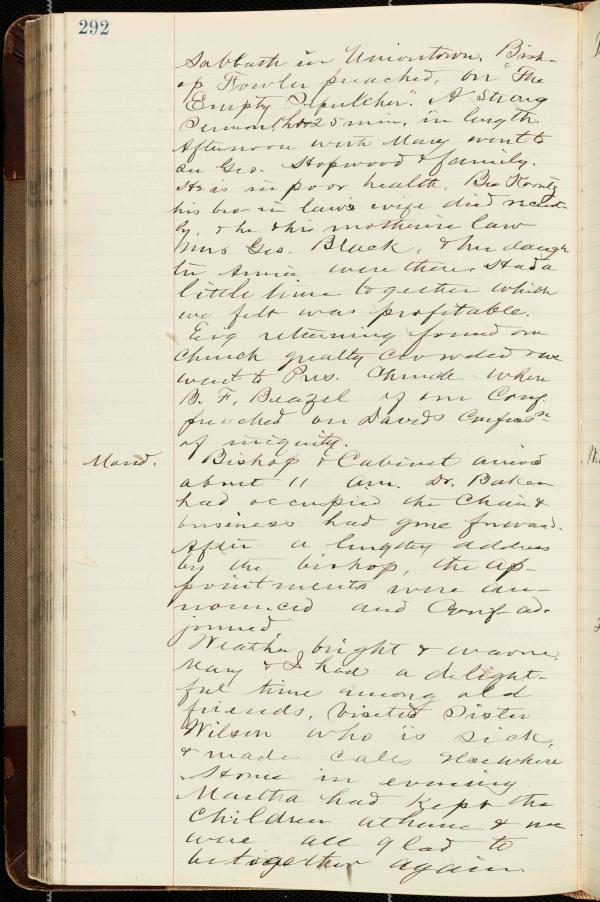 292
Sabbath in Uniontown. Bish-
op Fowler preached, on "The
Empty Sepulcher". A strong
Sermon 1 h & 25 min, in length.
Afternoon with Mary went to
see Geo. Hopwood & family.
He is in poor health. Bro Koontz
his bro-in law's wife died recent-
ly, & he & his mother in law
Mrs Geo. Black, & her daugh
ter Annie were there. Had a
little time together which
we felt was profitable.
Evg returning found our
church greatly crowded & we
went to Pres. Church where
B. F. Beazel of our Conf.
preached on Davids Confess^n
of iniquity.
Mond. Bishop & Cabinet arrived
about 11 am. Dr. Baker
had occupied the Chair &
business had gone forward.
After a lengthy address
by the bishop, the ap-
pointments were an-
nounced and Conf ad-
journed.
Weather bright & warm,
Mary & I had a delight-
ful time among old
friends, Visited Sister
Wilson who is sick,
& made calls elsewhere
Home in evening
Martha had kept the
children at home & we
were all glad to
be together again.